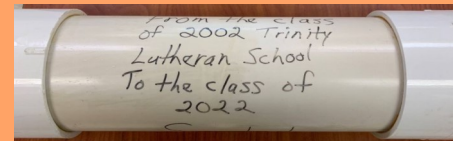 From the class
of 2002 Trinity
Lutheran School
To the class of
2022